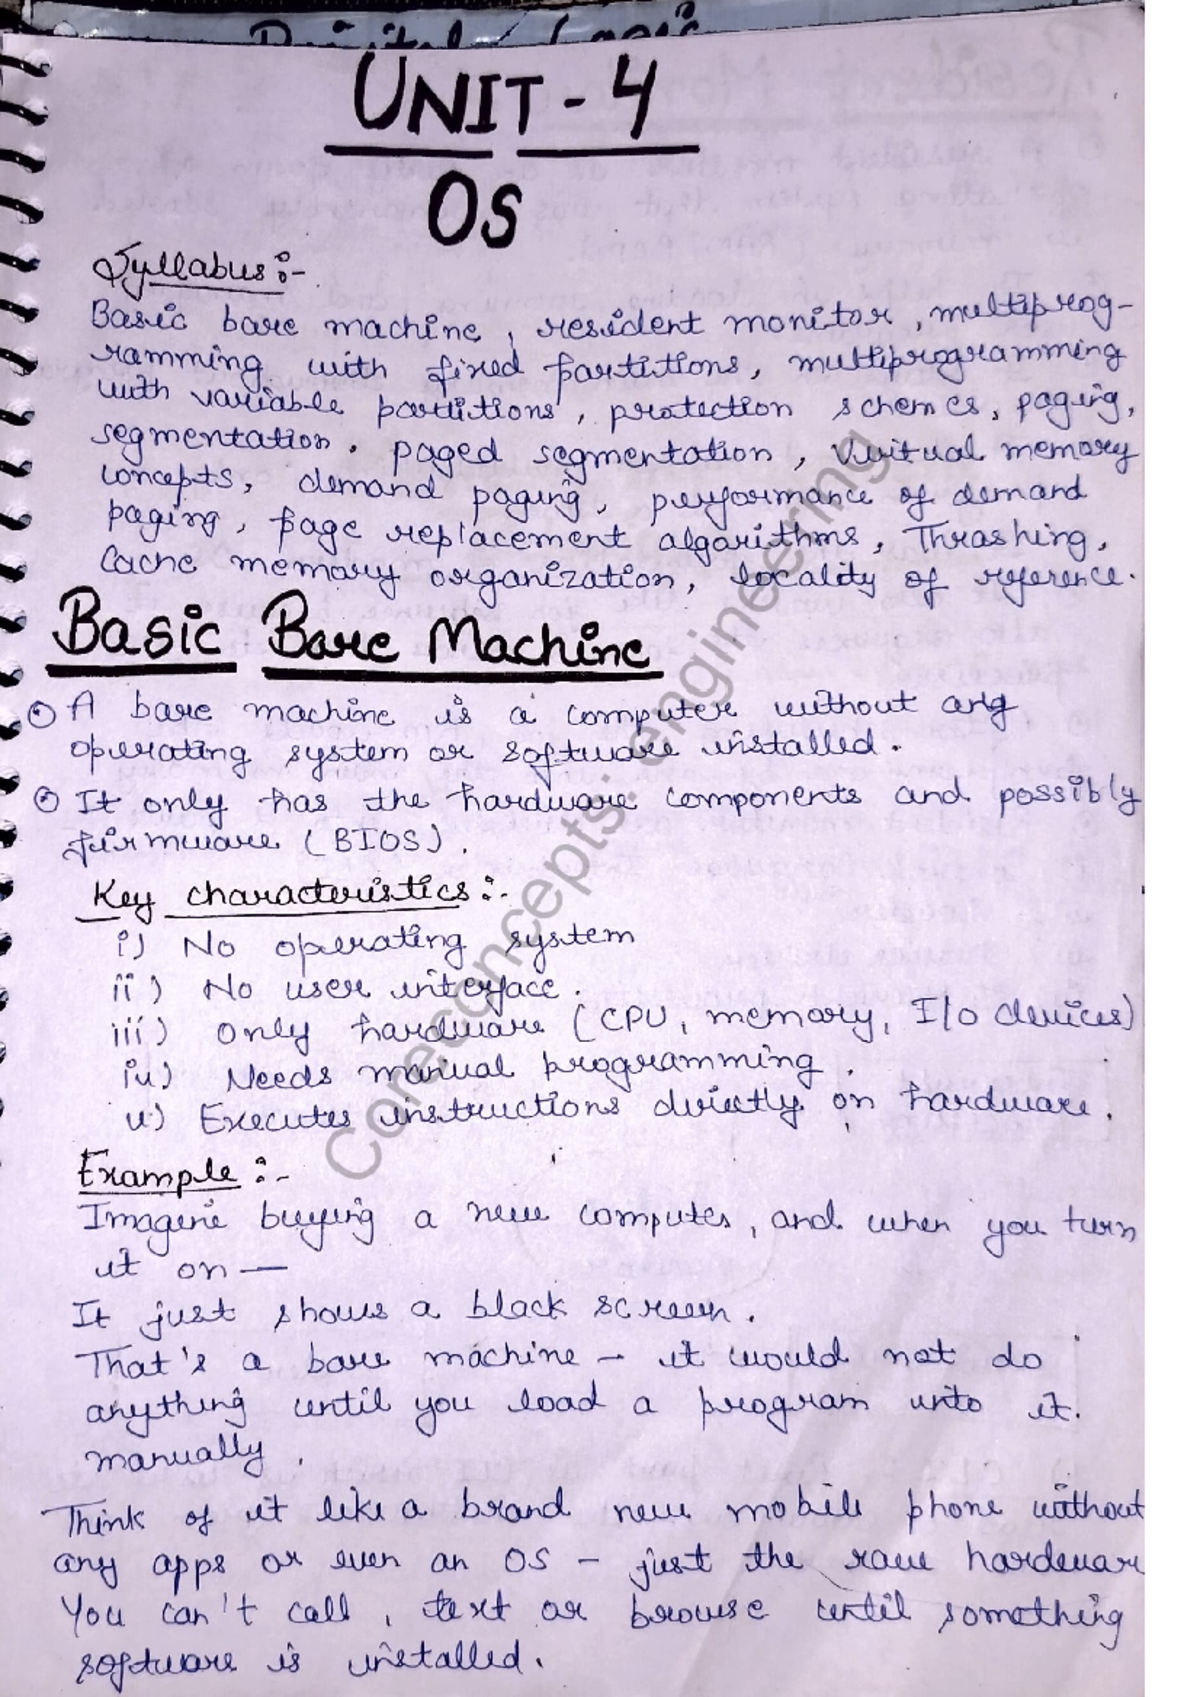 Digital Logic
UNIT - 4
OS
Syllabus :-
Basic bare machine, resident monitor, multiprog-
ramming with fixed partitions, multiprogramming
with variable partitions, protection schemes, paging,
segmentation. paged segmentation, Virtual memory
concepts, demand paging, performance of demand
paging, page replacement algorithms, Thrashing,
Cache memory organization, locality of reference.
Basic Bare Machine
A bare machine is a computer without any
operating system or software installed.
It only has the hardware components and possibly
firmware (BIOS).
Key characteristics :-
i) No operating system
ii) No user interface.
iii) Only hardware (CPU, memory, I/O devices)
iv) Needs manual programming.
v) Executes instructions directly on hardware.
Example :-
Imagine buying a new computer, and when you turn
it on —
It just shows a black screen.
That's a bare machine - it would not do
anything until you load a program into it.
manually.
Think of it like a brand new mobile phone without
any apps or even an OS - just the raw hardwar
You can't call, text or browse until something
software is installed.
Coreconcepts.engineering